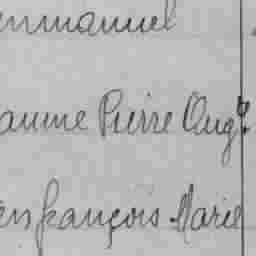 emmanuel
aume Pierre Aug.e
ens françois Marie